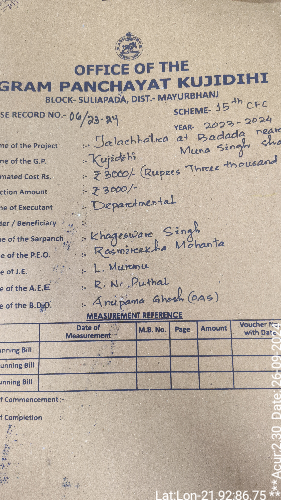 OFFICE OF THE
GRAM PANCHAYAT KUJIDIHI
BLOCK- SULIAPADA, DIST.- MAYURBHANJ
SE RECORD NO.- 06/23-24
SCHEME- 15th CFC
YEAR- 2023-2024
me of the Project :- Jalachhatra at Badada near
Muna Singh
me of the G.P. :- Kujidihi
mated Cost Rs. :- ₹ 3000/- (Rupees Three thousand
ction Amount :- ₹ 3000/-
me of Executant :- Departmental
der / Beneficiary :-
e of the Sarpanch :- Khageswar Singh
e of the P.E.O. :- Rasmirekha Mohanta
e of J.E. :- L. Murmu
e of the A.E.E. :- R. N. Puthal
e of the B.D.O. :- Anupama Ghosh (OAS)
MEASUREMENT REFERENCE
Date of Measurement M.B. No. Page Amount Voucher N with Date
unning Bill
unning Bill
unning Bill
f Commencement :-
f Completion
Lat:Lon-21.92:86.75
***Acur:2.30 Date:26-09-2024